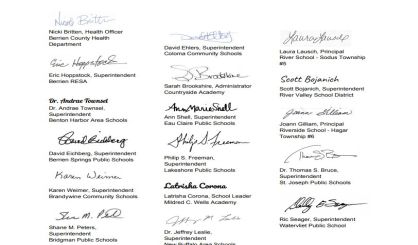 Nicki Britten
Nicki Britten, Health Officer
Berrien County Health
Department
Eric Hoppstock
Eric Hoppstock, Superintendent
Berrien RESA
Dr. Andrae Townsel
Dr. Andrae Townsel,
Superintendent
Benton Harbor Area Schools
David Eichberg
David Eichberg, Superintendent
Berrien Springs Public Schools
Karen Weimer
Karen Weimer, Superintendent
Brandywine Community Schools
Shane M. Peters
Shane M. Peters,
Superintendent
Bridgman Public Schools
David Ehlers, Superintendent
Coloma Community Schools
S. Brookshire
Sarah Brookshire, Administrator
Countryside Academy
Ann Marie Snell
Ann Shell, Superintendent
Eau Claire Public Schools
Philip S. Freeman
Philip S. Freeman,
Superintendent
Lakeshore Public Schools
Latrisha Corona
Latrisha Corona, School Leader
Mildred C. Wells Academy
Dr. Jeffrey Leslie,
Superintendent
New Buffalo Area Schools
Laura Lausch
Laura Lausch, Principal
River School - Sodus Township
#5
Scott Bojanich
Scott Bojanich, Superintendent
River Valley School District
Joann Gilliam
Joann Gilliam, Principal
Riverside School - Hagar
Township #6
Dr. Thomas S. Bruce,
Superintendent
St. Joseph Public Schools
Ric Seager,
Superintendent
Watervliet Public Schools